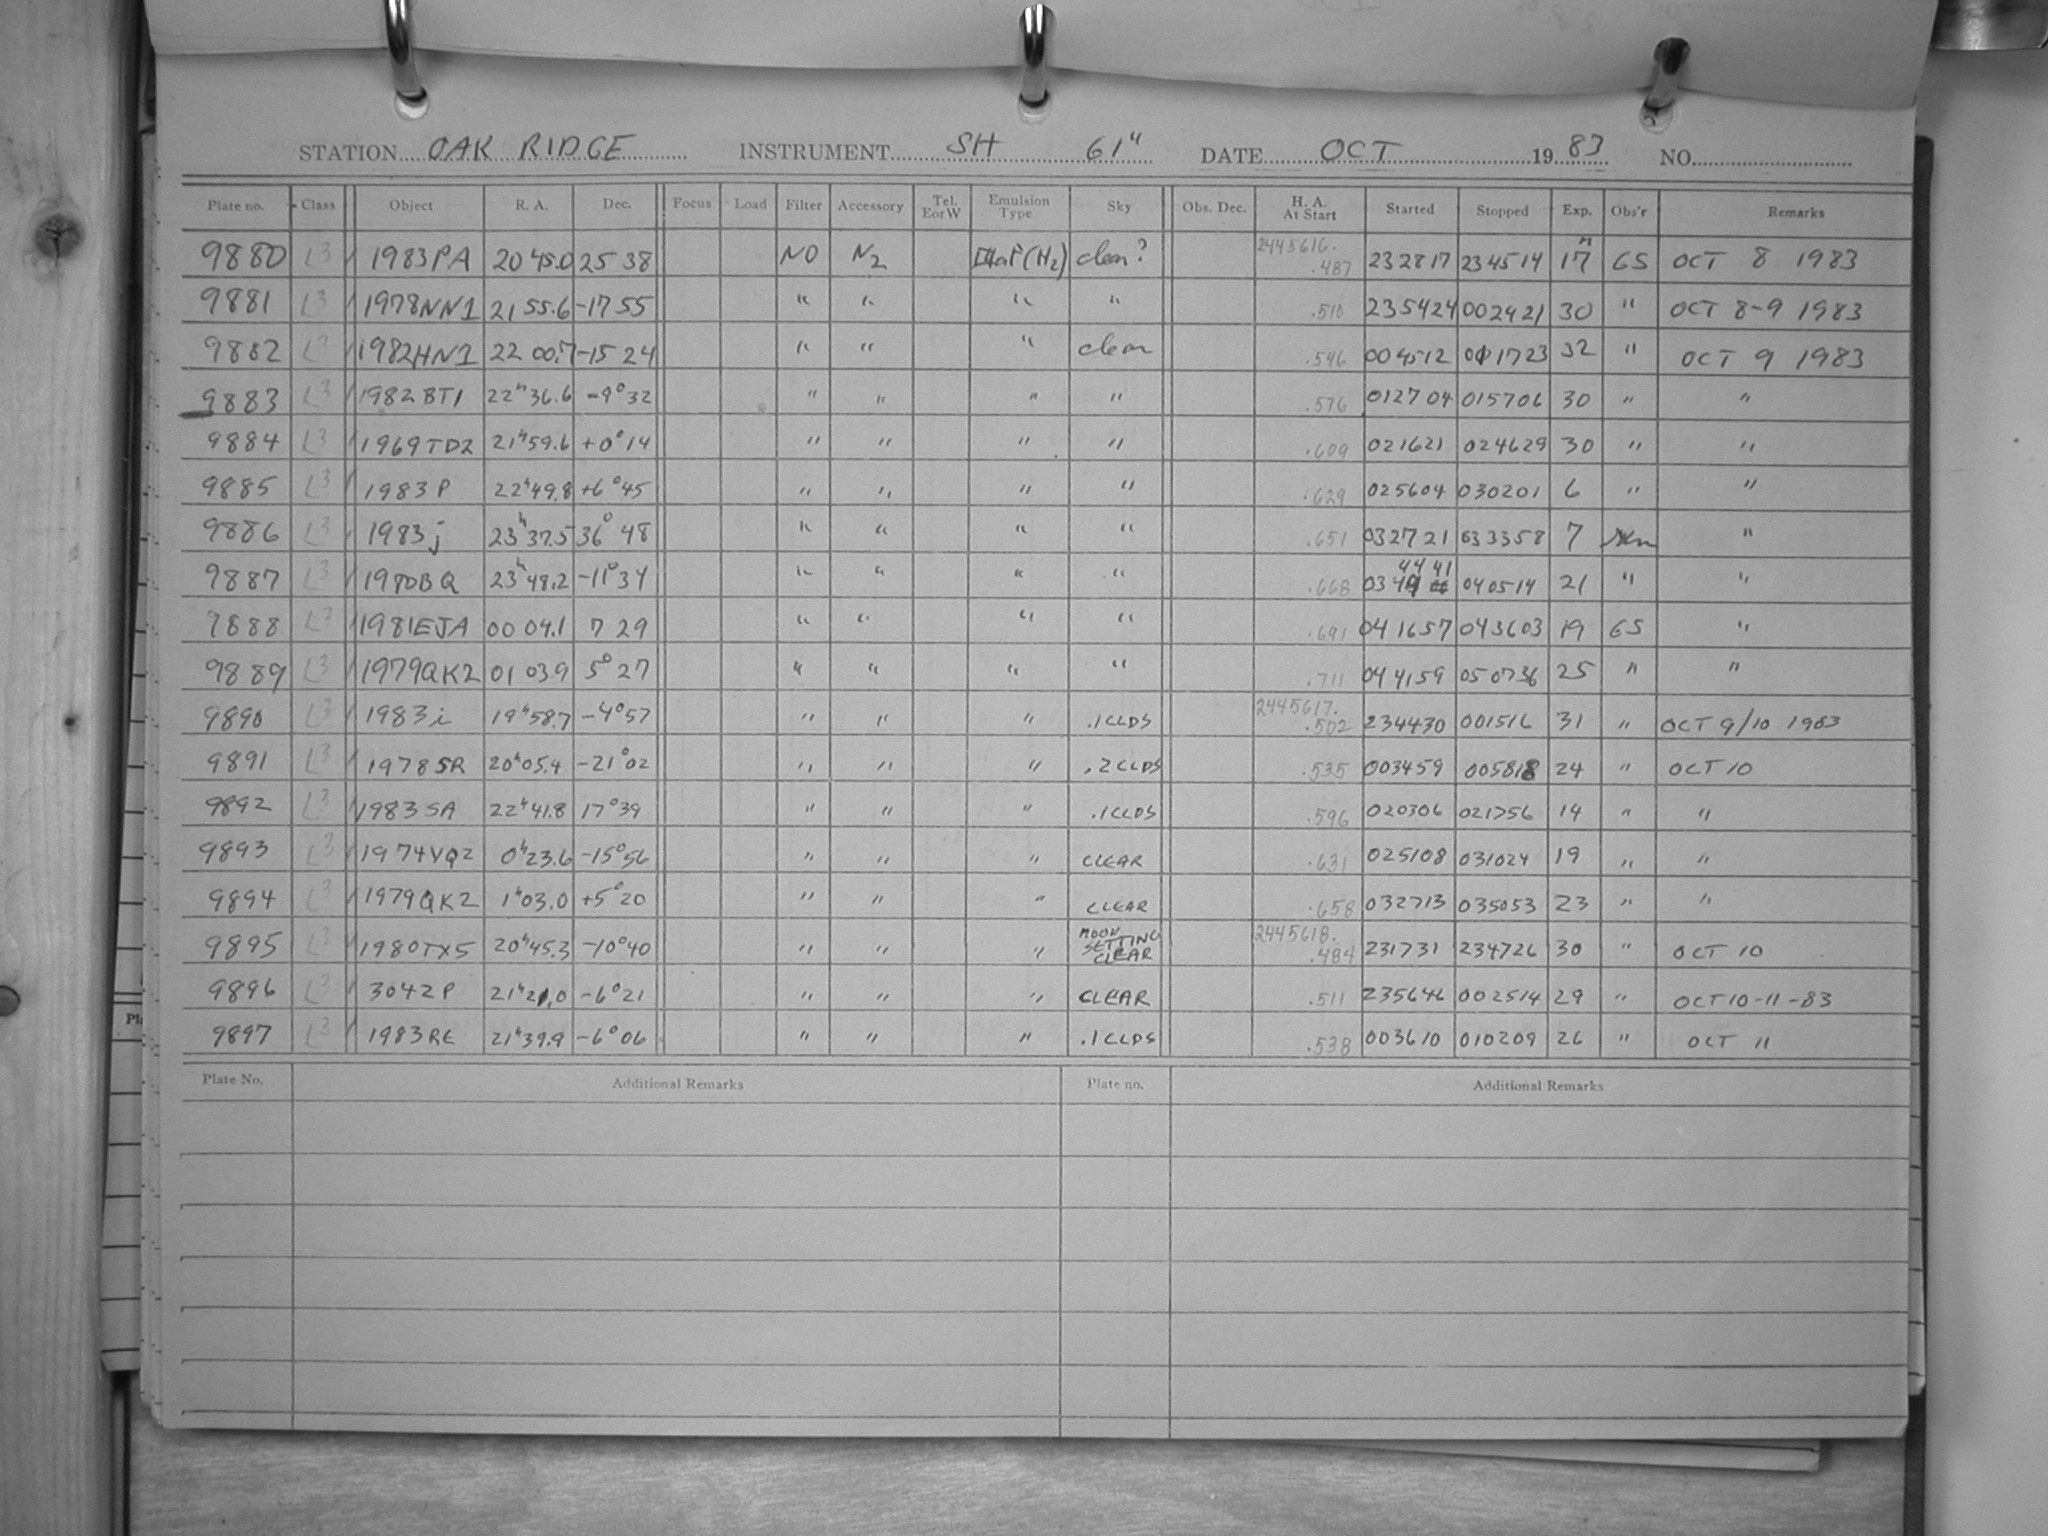 STATION OAK RIDGE INSTRUMENT SH 61" DATE OCT 1983 NO.
Plate no. Class Object R. A. Dec. Focus Load Filter Accessory Tel. EorW Emulsion Type Sky Obs. Dec. H. A. At Start Started Stopped Exp. Obs'r Remarks
9880 L3 1983PA 20 45.0 25 38 NO N2 IIIaF(H2) clear? 2445616. .487 232817 234514 17m GS OCT 8 1983
9881 L3 1978NN1 21 55.6 -17 55 " " " " .510 235424 002421 30 " OCT 8-9 1983
9882 L3 1982HN1 22 00.7 -15 24 " " " clear .546 004512 011723 32 " OCT 9 1983
9883 L3 1982BT1 22h36.6 -9°32 " " " " .576 012704 015706 30 " "
9884 L3 1969TD2 21h59.6 +0°14 " " " " .609 021621 024629 30 " "
9885 L3 1983P 22h49.8 +6°45 " " " " .629 025604 030201 6 " "
9886 L3 1983j 23h37.5 36°48 " " " " .651 032721 033358 7 "
9887 L3 1980BQ 23h48.2 -11°34 " " " " .668 034441 040514 21 " "
9888 L3 1981EJA 00 04.1 7 29 " " " " .691 041657 043603 19 GS "
9889 L3 1979QK2 01 03.9 5°27 " " " " .711 044159 050736 25 " "
9890 L3 1983i 19h58.7 -4°57 " " " .1CLDS 2445617. .502 234430 001516 31 " OCT 9/10 1983
9891 L3 1978SR 20h05.4 -21°02 " " " .2CLDS .535 003459 005818 24 " OCT 10
9892 L3 1983SA 22h41.8 17°39 " " " .1CLDS .596 020306 021756 14 " "
9893 L3 1974VQ2 0h23.6 -15°56 " " " CLEAR .631 025108 031024 19 " "
9894 L3 1979QK2 1h03.0 +5°20 " " " CLEAR .658 032713 035053 23 " "
9895 L3 1980TX5 20h45.3 -10°40 " " " MOON SETTING CLEAR 2445618. .484 231731 234726 30 " OCT 10
9896 L3 3042P 21h21.0 -6°21 " " " CLEAR .511 235646 002514 29 " OCT 10-11-83
9897 L3 1983RE 21h39.9 -6°06 " " " .1CLDS .538 003610 010209 26 " OCT 11
Plate No. Additional Remarks Plate no. Additional Remarks